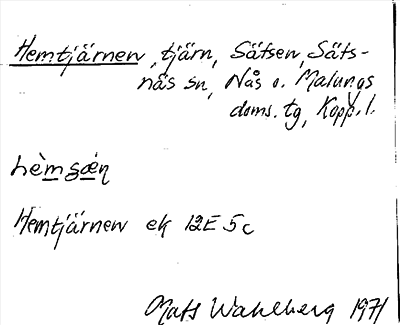 Hemtjärnen, tjärn, Säfsen, Säfs-
näs sn, Nås o. Malungs
doms. tg, Kopp. l.
Hemtjärnen ek 12E 5c
Mats Wahlberg 1971